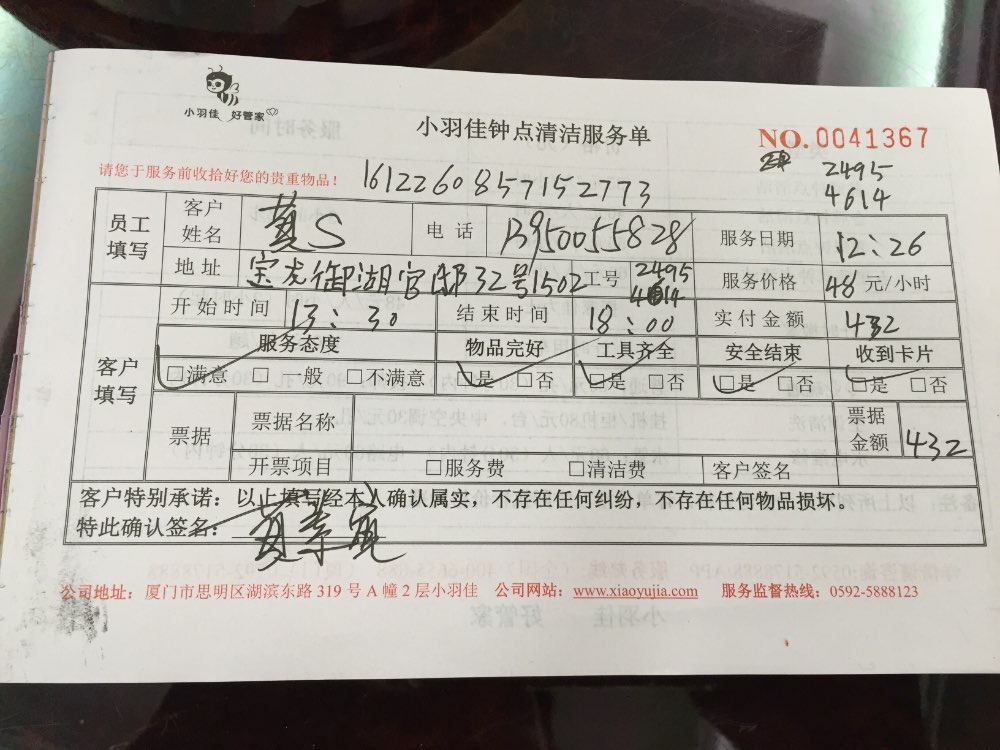 小羽佳 好管家
小羽佳钟点清洁服务单
NO.0041367
请您于服务前收拾好您的贵重物品！
1612260857152773
2495
4614
员工填写 客户姓名 黄S 电话 13950055828 服务日期 12:26
地址 宝龙御湖官邸32号1502 工号 2495 4614 服务价格 48元/小时
开始时间 13:30 结束时间 18:00 实付金额 432
客户填写 服务态度 物品完好 工具齐全 安全结束 收到卡片
□满意 □一般 □不满意 □是 □否 □是 □否 □是 □否 □是 □否
票据 票据名称 票据金额 432
开票项目 □服务费 □清洁费 客户签名
客户特别承诺：以上填写经本人确认属实，不存在任何纠纷，不存在任何物品损坏。
特此确认签名：黄
公司地址：厦门市思明区湖滨东路319号A幢2层小羽佳 公司网站：www.xiaoyujia.com 服务监督热线：0592-5888123